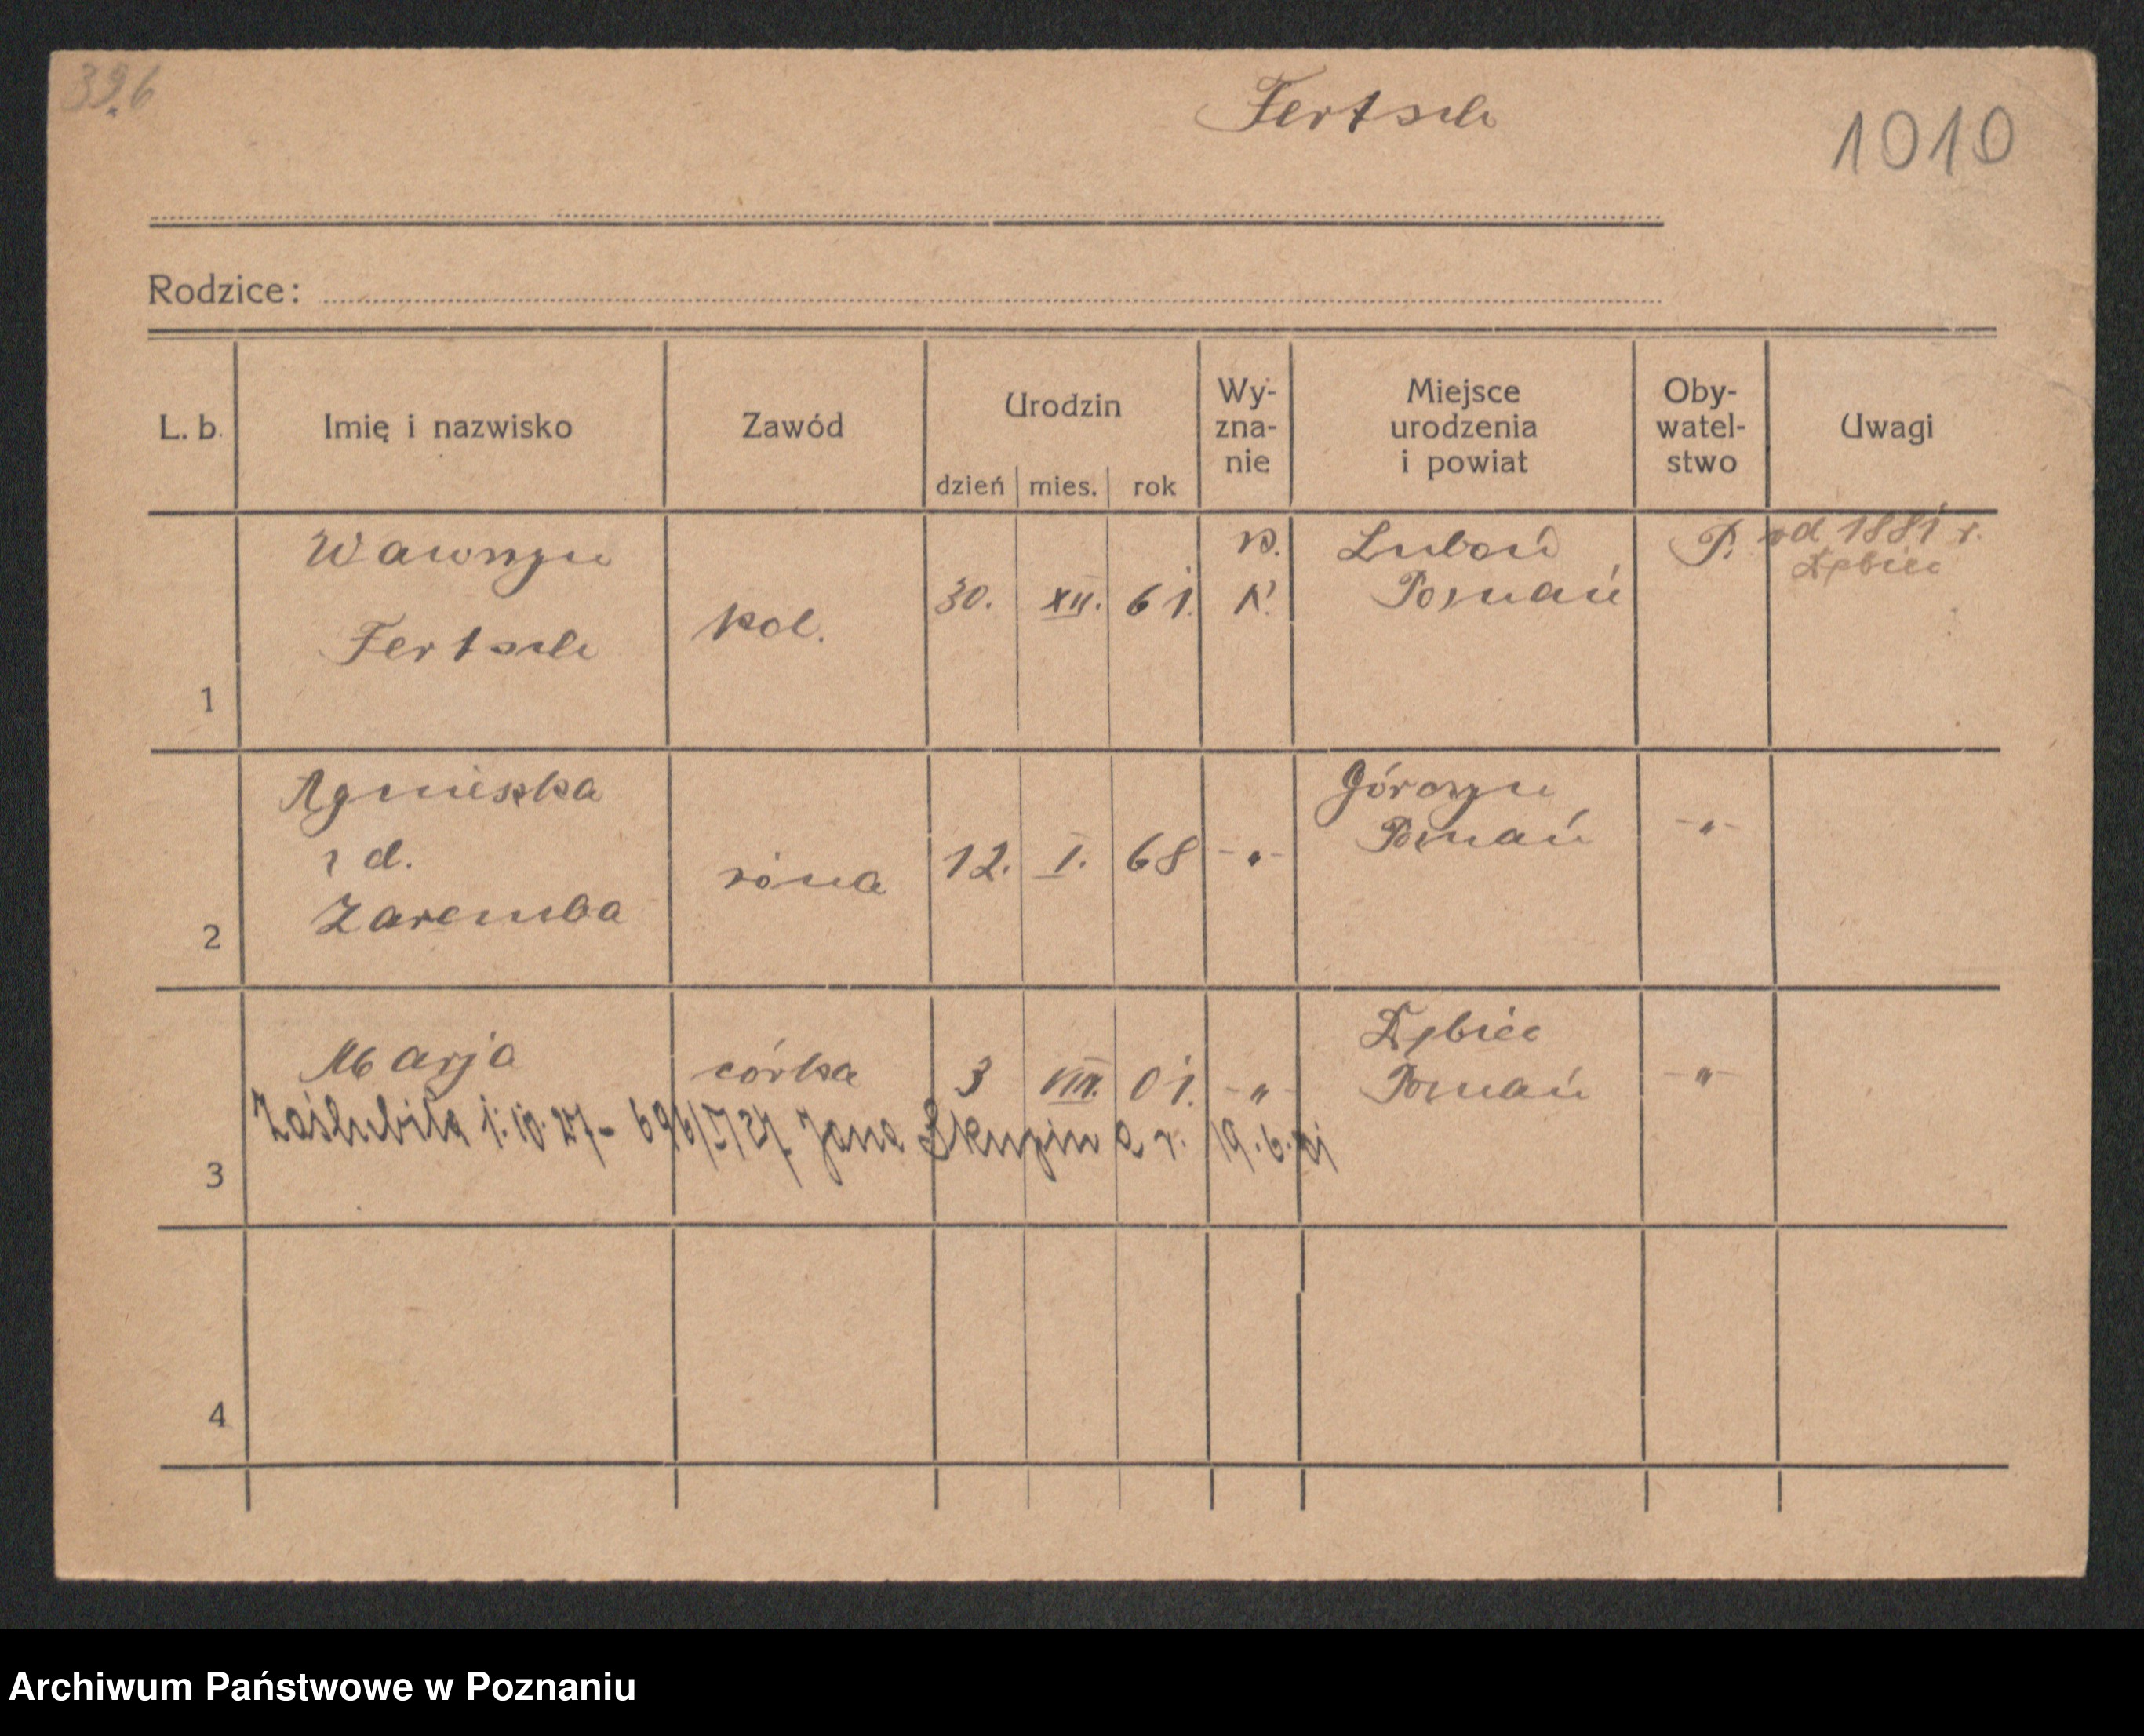 396
Fertsch
1010
Rodzice:
L. b. Imię i nazwisko Zawód Urodzin dzień mies. rok Wy-zna-nie Miejsce urodzenia i powiat Oby-watel-stwo Uwagi
1 Wawrzyn Fertsch kol. 30. XII. 61. k. Luboń Poznań P. od 1881 r. Dębiec
2 Agnieszka z d. Zaremba żona 12. I. 68 -"- Górczyn Poznań -"-
3 Marja córka 3 VIII. 01. -"- Dębiec Poznań -"-
Zaślubiła 1.10.27 - 696/I/27 Jana Skupin a r. 19.6.
4
Archiwum Państwowe w Poznaniu